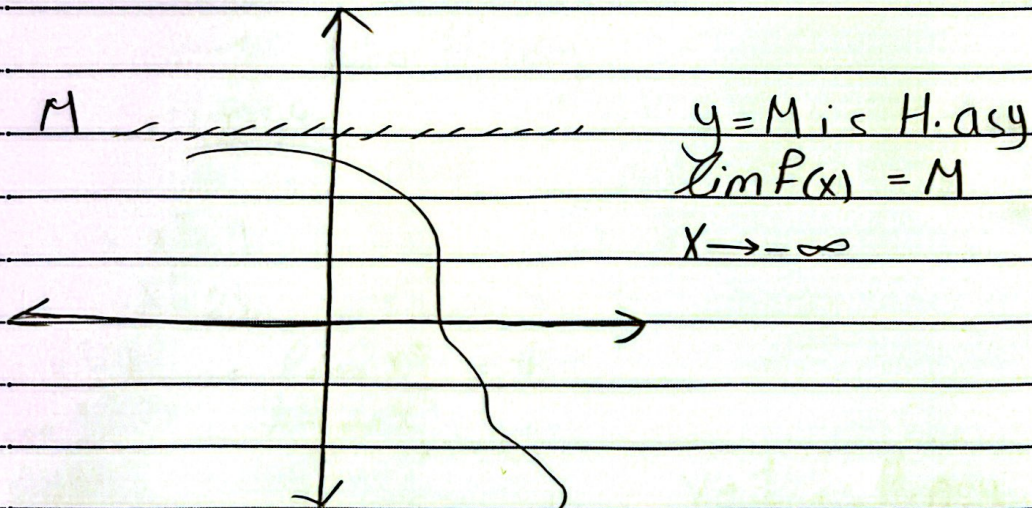 M
y = M is H. asy
lim f(x) = M
x → -∞